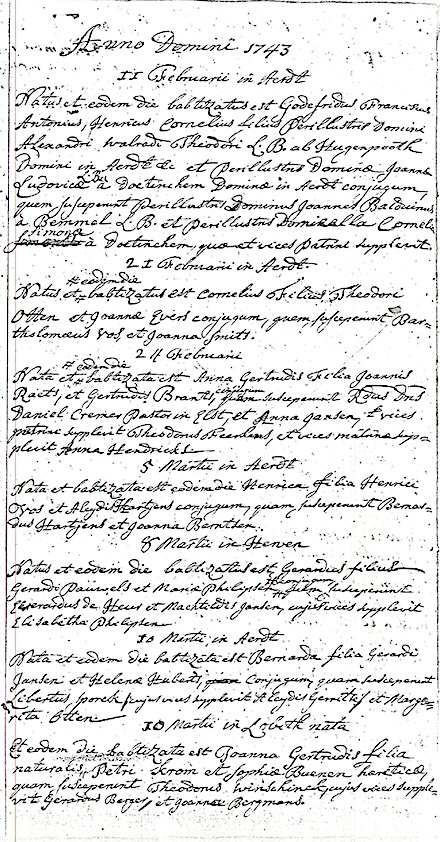 Anno Domini 1743
11 Februarii in Aerdt
Natus et eodem die babtizatus est Godefridus Franciscus
Antonius, Henricus Cornelius filius Perillustris Domini
Alexandri Walradi Theodori L. B. ab Hugenpooth
Domini in Aerdt &c et Perillustris Dominæ Joannæ
Ludovicæ L. B. à Doetinchem Dominæ in Aerdt conjugum,
quem susceperunt Perillustris Dominus Joannes Balduinus
à Bemmel L. B. et Perillustris Domicella Cornelia
Simona
à Doetinchem, quæ et vices Patrini supplevit.
21 Februarii in Aerdt.
# eodem die
Natus et babtizatus est Cornelius Filius Theodori
Otten et Joannæ Evers conjugum, quem susceperunt Bar-
tholomæus Vos, et Joanna Smits.
24 Februarii
# eodem die
Nata et babtizata est Anna Gertrudis Filia Joannis
Raets, et Gertrudis Brants conjugum quam susceperunt Rdus Dns
Daniel Cremer Pastor in Elst, et Anna Jansen, et vices
patrini supplevit Theodorus Feerdens, et vices matrinæ sup-
plevit Anna Hendricks
5 Martii in Aerdt
Nata et babtizata est eodem die Henrica filia Henrici
Vos et Aleydis Hartjens conjugum, quam susceperunt Bernar-
dus Hartjens et Joanna Berntsen.
8 Martii in Herven
Natus et eodem die babtizatus est Gerardus filius
Gerardi Pauwels et Mariæ Philipsen conjugum quem susceperunt
Everardus de Heus et Machteldis Jansen, cujus vices supplevit
Elisabetha Philipsen
10 Martii in Aerdt
Nata et eodem die babtizata est Bernarda filia Gerardi
Jansen et Helenæ Huberts, conjugum, quam susceperunt
Libertus Sporck (cujus vices supplevit Aleydis Gerrits) et Marga-
rita Otten
10 Martii in Lobeth nata
Et eodem die babtizata est Joanna Gertrudis filia
naturalis Petri Krom et Sophiæ Buenen hæreticæ,
quam susceperunt Theodorus Winschinck cujus vices supple-
vit Gerardus Berges, et Joanna Bergmans.